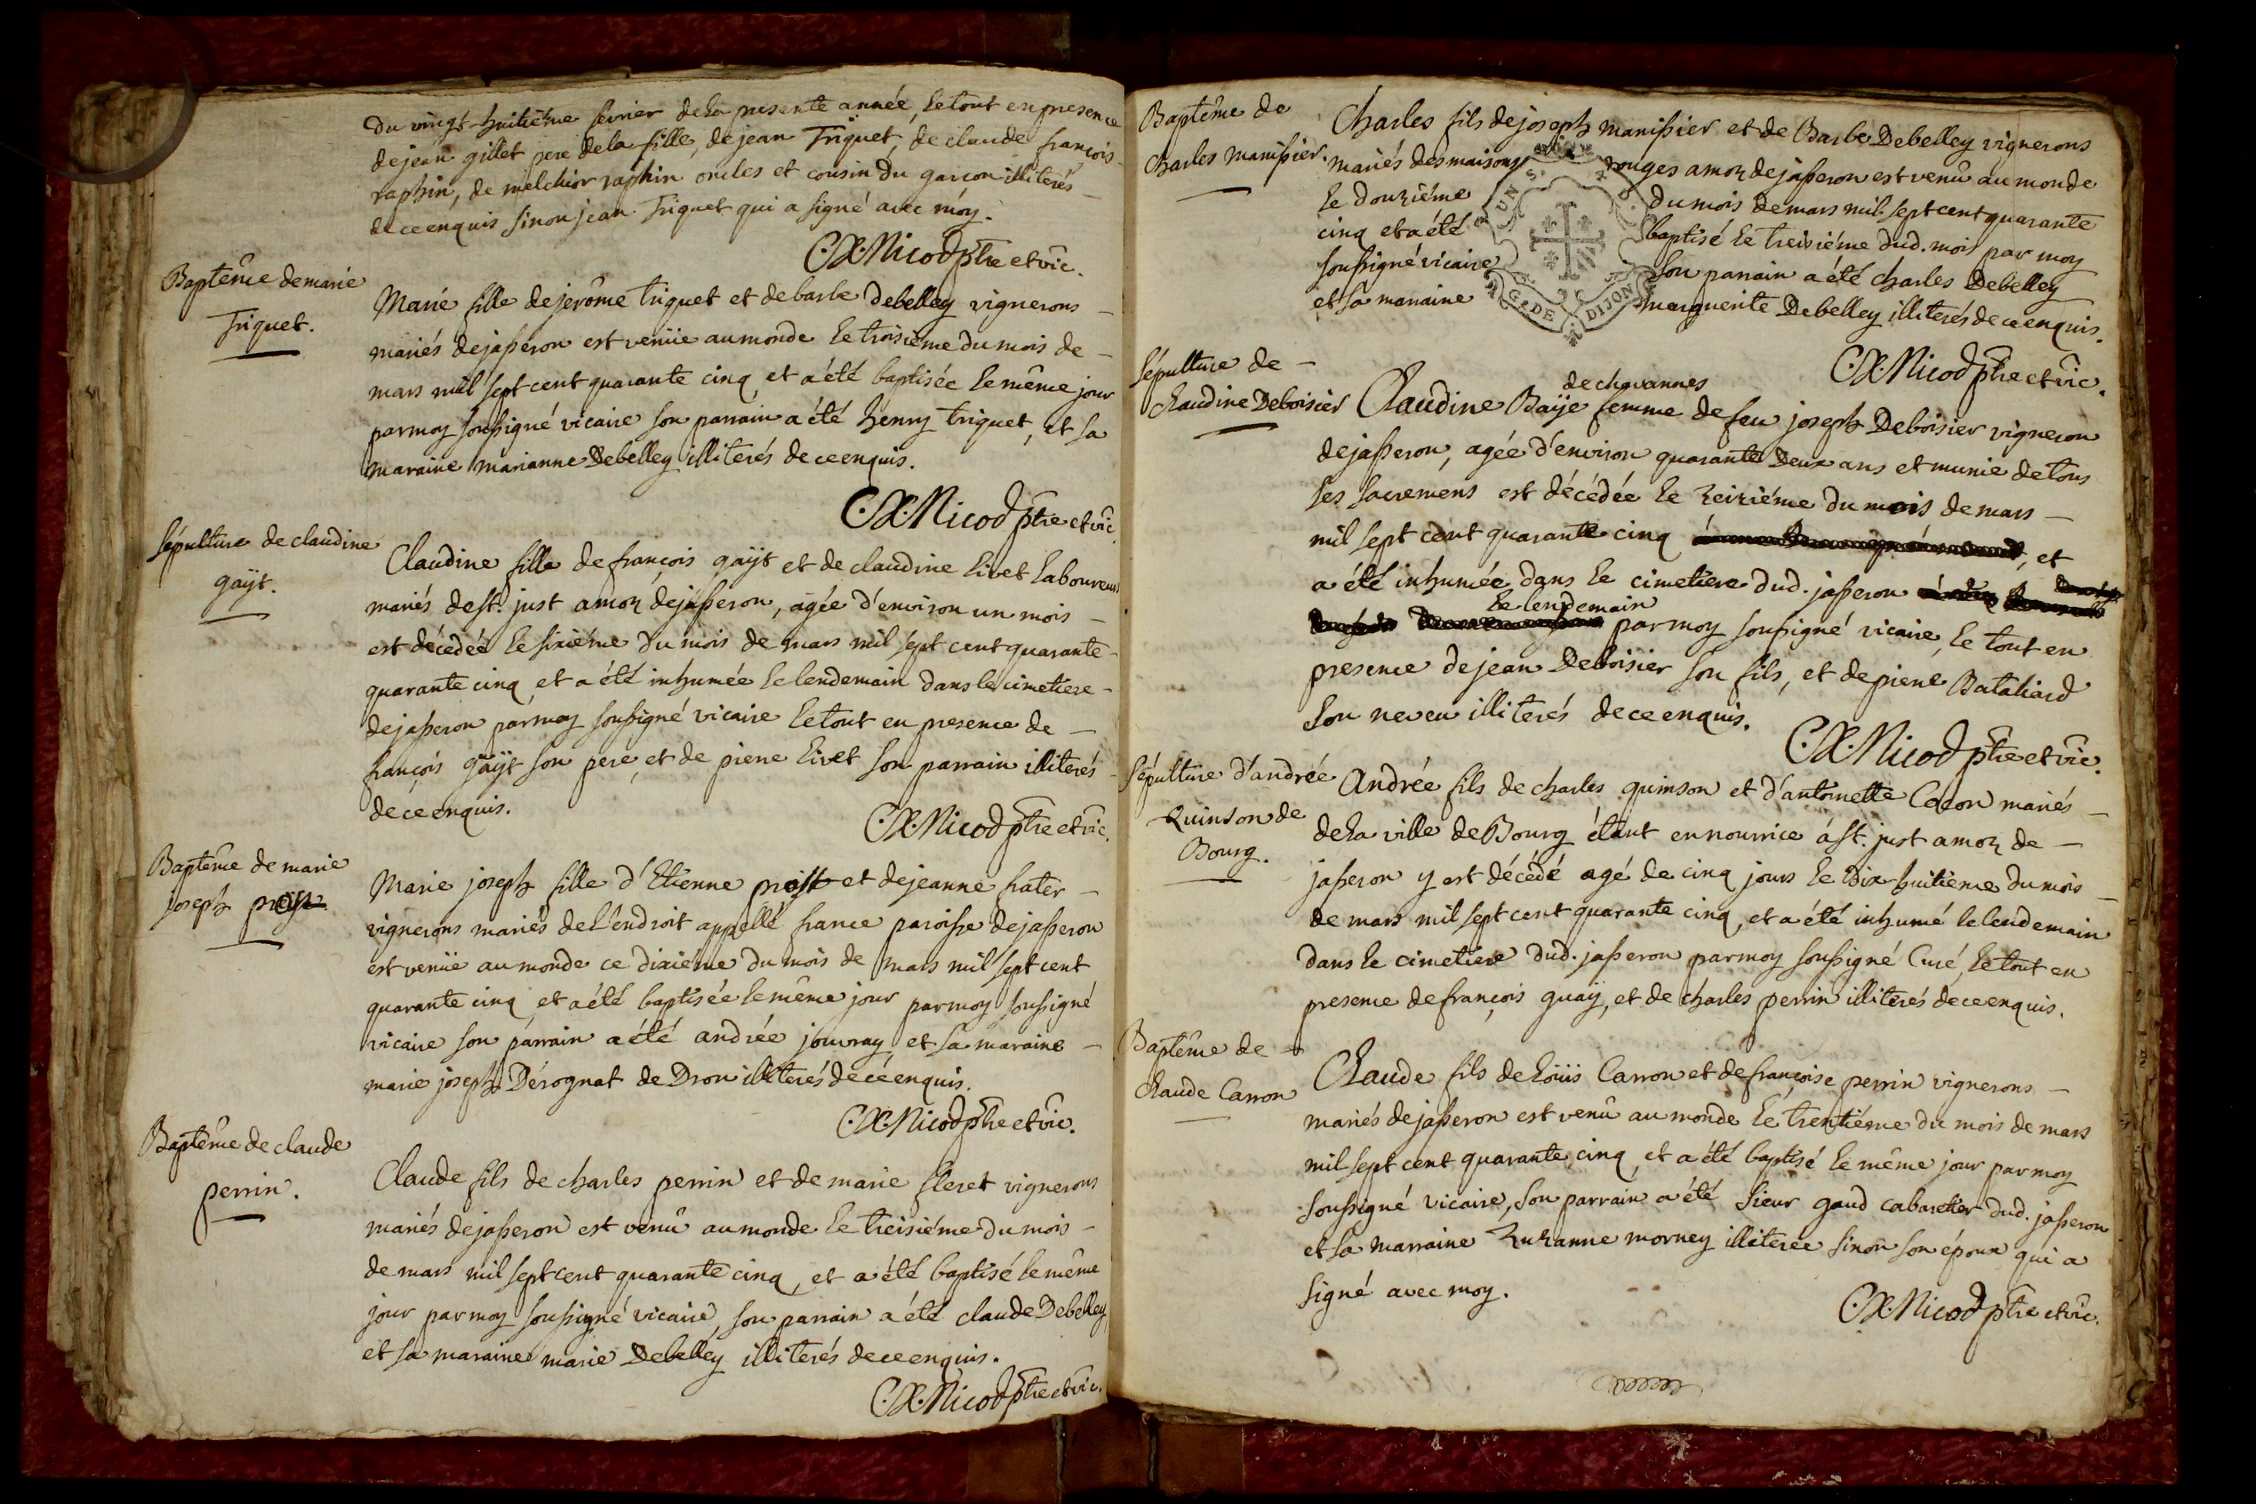 du vingt-huitiéme fevrier dela presente année, le tout en presence
de jean gillet pere dela fille, de jean Triquet, de claude françois
raphin, de melchior raphin oncles et cousin du garcon illiterés
de ce enquis sinon jean Triquet qui a signé avec moy.
C.X.Nicod ptre et vic.
Baptême de marie
Triquet.
Marie fille de jerôme triquet et de barbe Debelley vignerons
mariés de jasseron est venüe au monde le troisiéme du mois de
mars mil sept cent quarante cinq et a été baptisée le même jour
par moy soussigné vicaire son parrain a été henry triquet, et sa
maraine marianne Debelley illiterés de ce enquis.
C.X.Nicod ptre et vic.
Sépulture de claudine
gaÿt.
Claudine fille de françois gaÿt et de claudine livet laboureurs
mariés de st. just amon de jasseron, agée d'environ un mois
est décedée le sixiéme du mois de mars mil sept cent quarante
quarante cinq et a été inhumée le lendemain dans le cimetiere
de jasseron par moy soussigné vicaire le tout en presence de
françois gaÿt son pere, et de piere livet son parrain illiterés
de ce enquis.
C.X.Nicod ptre et vic.
Baptême de marie
joseph prost.
Marie joseph fille d'Etienne prost et de jeanne frater
vignerons mariés de l'endroit appellé france paroisse de jasseron
est venüe au monde ce dixiéme du mois de mars mil sept cent
quarante cinq et a été baptisée le même jour par moy soussigné
vicaire son parrain a été andrée jouvray, et sa maraine
marie joseph Dérognat de Dron illiterés de ce enquis.
C.X.Nicod ptre et vic.
Baptême de claude
perrin.
Claude fils de charles perrin et de marie fleret vignerons
mariés de jasseron est venû au monde le treisiéme du mois
de mars mil sept cent quarante cinq, et a été baptisé le même
jour par moy soussigné vicaire, son parrain a été claude Debelley,
et sa maraine marie Debelley illiterés de ce enquis.
C.X.Nicod ptre et vic.
Baptême de
charles manissier.
Charles fils de joseph manissier et de Barbe Debelley vignerons
mariés des maisons rouges amon de jasseron est venû au monde
le douziéme du mois de mars mil sept cent quarante
cinq et a été baptisé le treiziéme dud. mois par moy
soussigné vicaire son parrain a été charles Debelley
et sa maraine marguerite Debelley illiterés de ce enquis.
G. DE DIJON
C.X.Nicod ptre et vic.
Sépulture de
claudine Deboisier
de chavannes
Claudine Baÿe femme de feu joseph Deboisier vigneron
de jasseron, agée d'environ quarante deux ans et munie de tous
les sacremens est décédée le zeiziéme du mois de mars
mil sept cent quarante cinq, et
a été inhumée dans le cimetiere dud. jasseron
le lendemain
par moy soussigné vicaire, le tout en
presence de jean Deboisier son fils, et de piere Bataliard
son neveu illiterés de ce enquis.
C.X.Nicod ptre et vic.
Sépulture d'andrée
Quinson de
Bourg.
Andrée fils de charles quinson et d'antoinette mariés
de la ville de Bourg étant en nourrice á st. just amon de
jasseron y est décédé agé de cinq jours le dix huitieme du mois
de mars mil sept cent quarante cinq, et a été inhumé le lendemain
dans le cimetiere dud. jasseron par moy soussigné Curé, le tout en
presence de françois guaÿ, et de charles perrin illiterés de ce enquis.
Baptême de
claude Carron
Claude fils de loüis Carron et de françoise perrin vignerons
mariés de jasseron est venû au monde le trentiéme du mois de mars
mil sept cent quarante cinq, et a été baptisé le même jour par moy
soussigné vicaire, son parrain a été sieur gaud cabaretier dud. jasseron
et sa marraine Zuzanne morney illiterée sinon son époux qui a
signé avec moy.
C.X.Nicod ptre et vic.